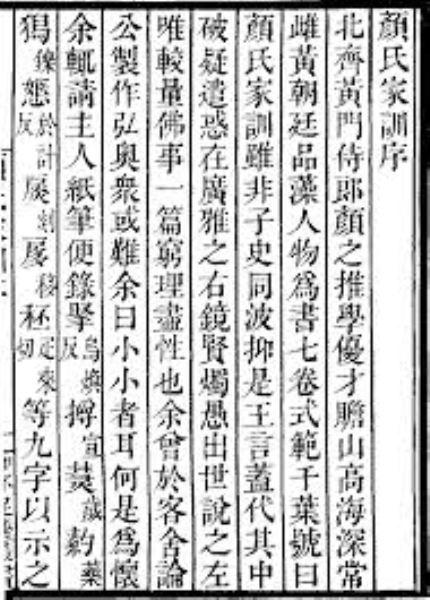 顏氏家訓序
北齊黃門侍郎顏之推學優才贍山高海深常
雌黃朝廷品藻人物爲書七卷式範千葉號曰
顏氏家訓雖非子史同波抑是王言蓋代其中
破疑遣惑在廣雅之右鏡賢燭愚出世說之左
唯較量佛事一篇窮理盡性也余曾於客舍論
公製作弘奧衆或難余曰小小者耳何是爲懷
余輒請主人紙筆便錄掔烏煥反宣歲葯藥
鑠於計反扊剡扅移秠疋來切等九字以示之